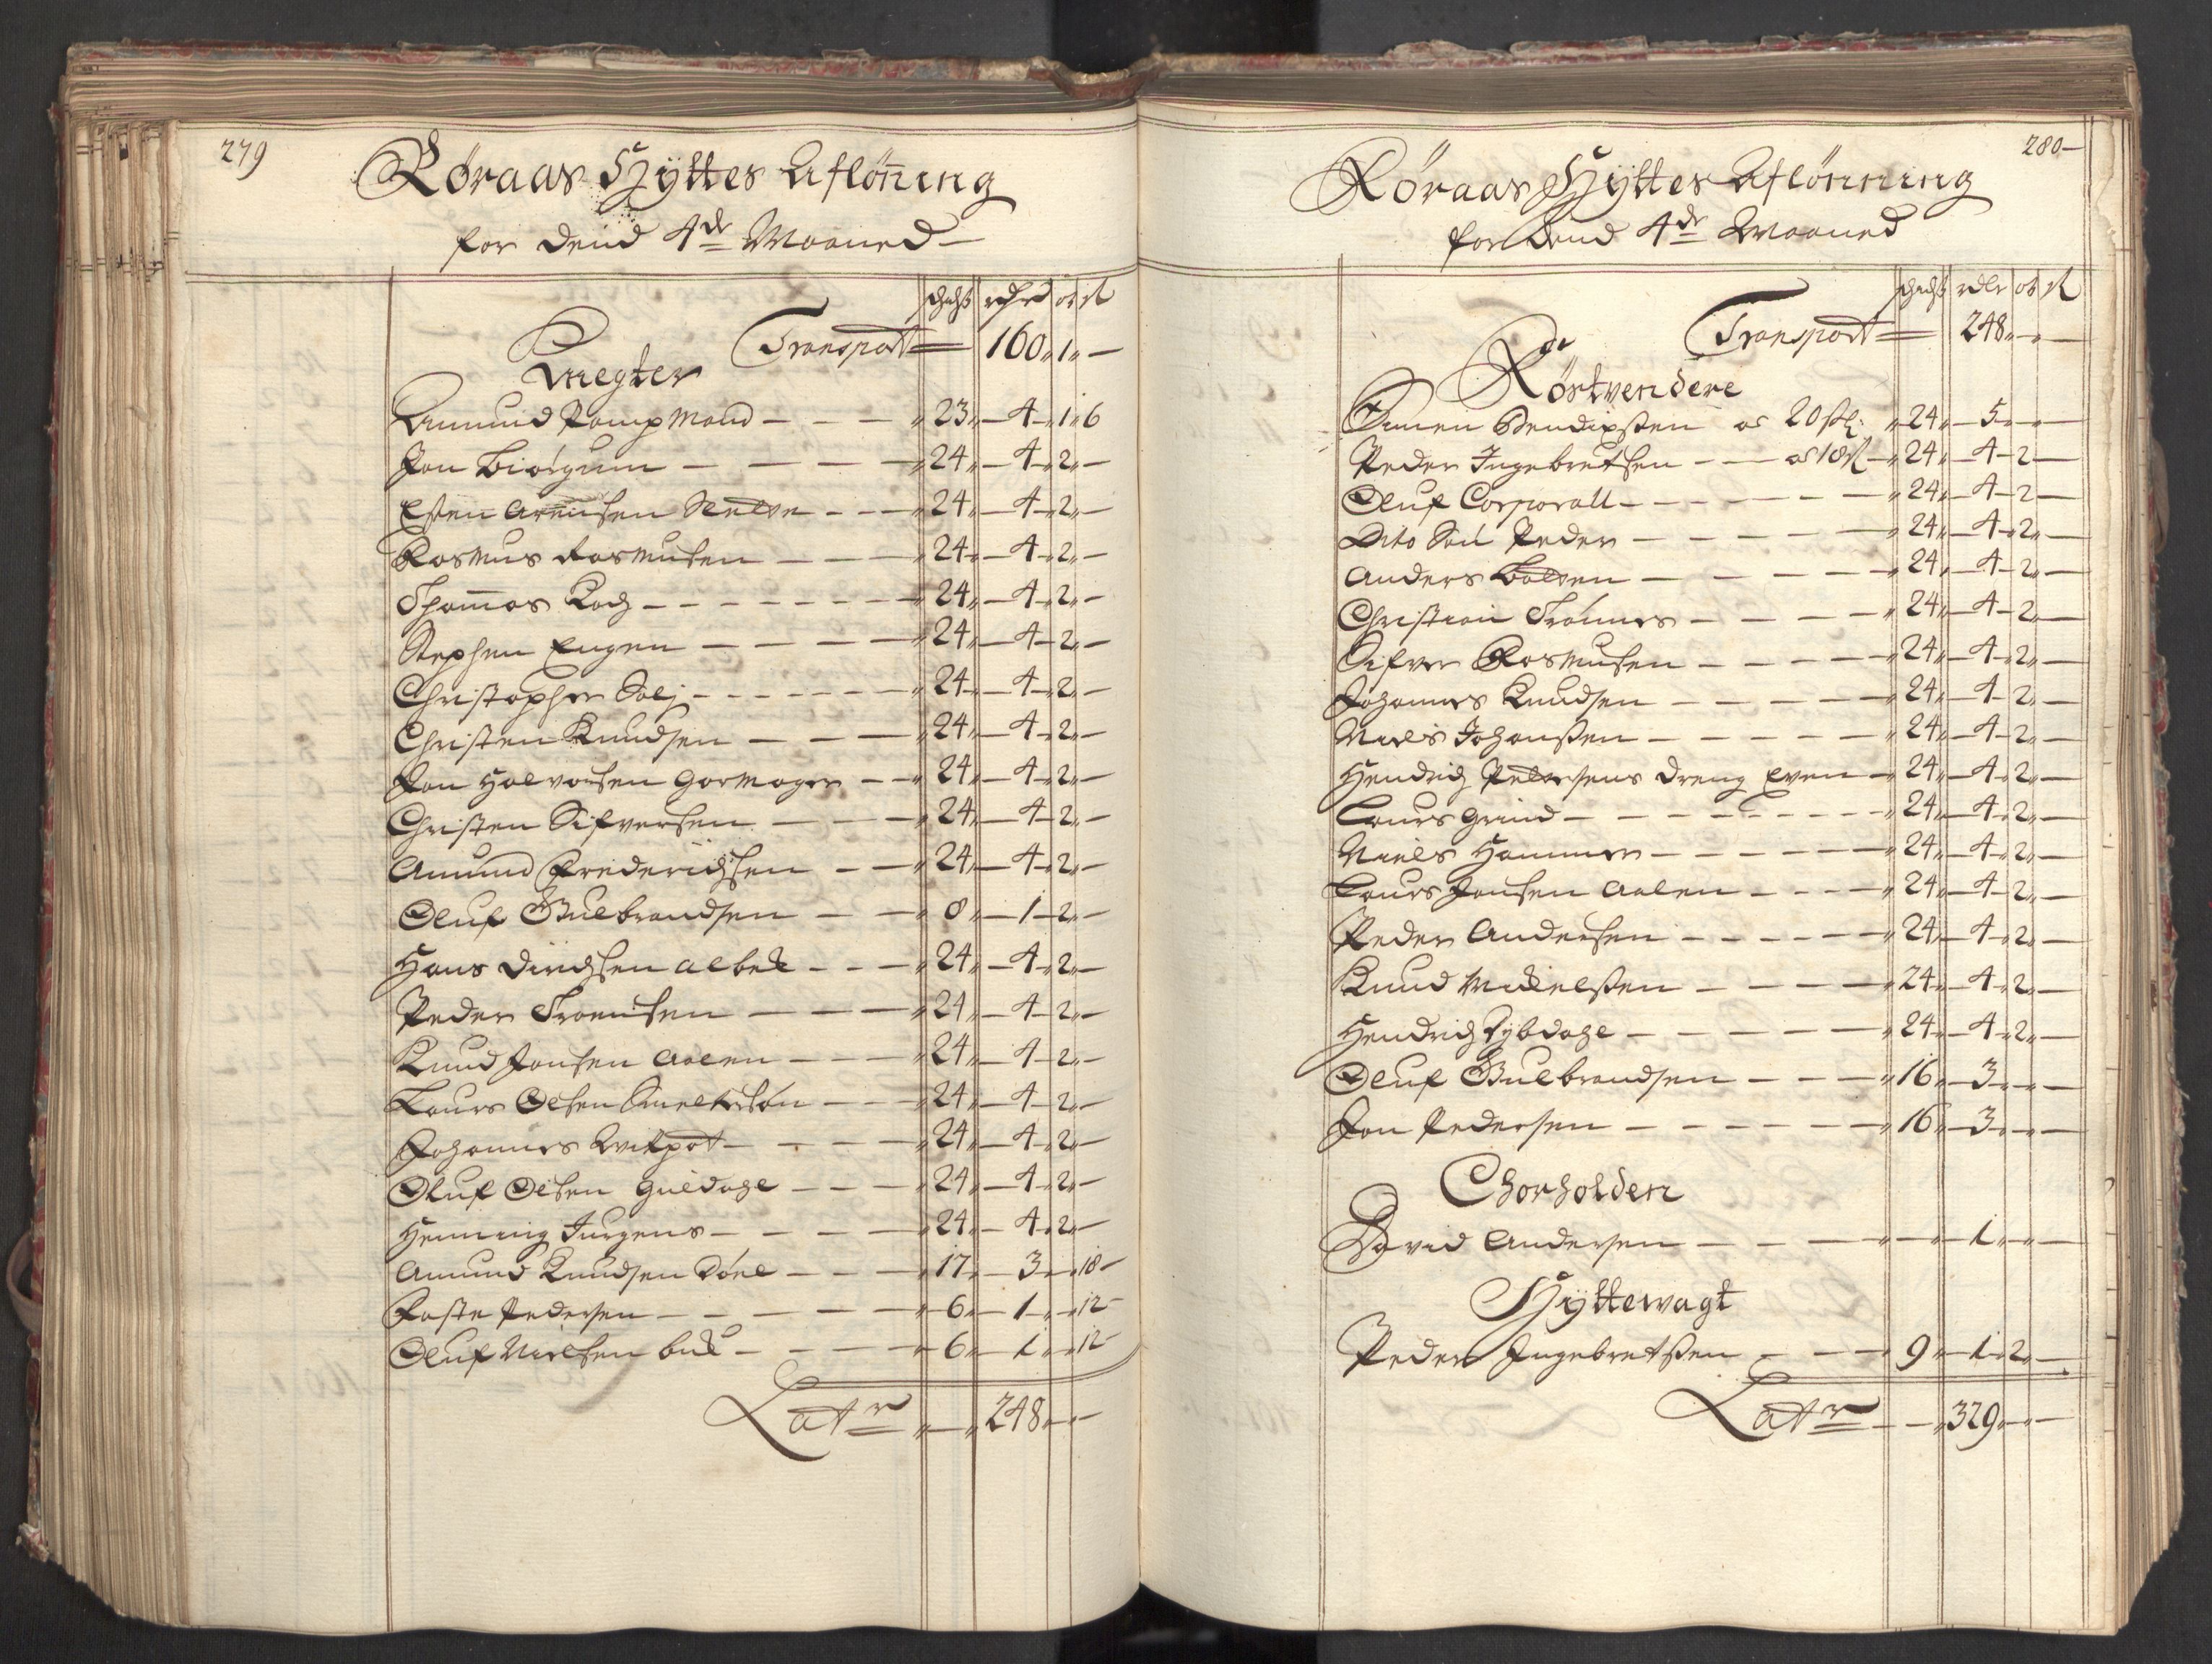 279
Røraas Hÿttes Aflönning
for Dend 4de Maaned
schicht rdlr ort sk
Transport 160 1 —
Knegter
Amund 23 4 1 6
Jon Biörgum 24 4 2 —
Esten Arensen 24 4 2 —
Rasmus Rasmusen 24 4 2 —
Thomas Koch 24 4 2 —
Stephen Engen 24 4 2 —
Christopher 24 4 2 —
Christen Knudsen 24 4 2 —
Jon Halvorsen Garmager 24 4 2 —
Christen Sifversen 24 4 2 —
Amund Frederichsen 24 4 2 —
Oluf Gulbrandsen 8 1 2 —
Hans Dirichsen Albek 24 4 2 —
Peder Troensen 24 4 2 —
Knud Jonsen Aalen 24 4 2 —
Laurs Olsen Smeltersön 24 4 2 —
Johannes Witpot 24 4 2 —
Oluf Olsen Guldahl 24 4 2 —
Henning Jurgens 24 4 2 —
Amund Knudsen Döel 17 3 — 18
Faste Pedersen 6 1 — 12
Oluf Nielsen buk 6 1 — 12
Latr 248 — —
280
Røraas Hÿttes Aflönning
for Dend 4de Maaned
schicht rdlr ort sk
Transport 248 — —
Röstvendere
Simen Bendixsen a 20 sk 24 5 — —
Peder Ingebretsen a 18 sk 24 4 2 —
Oluf Corporall 24 4 2 —
Dito Sön Peder 24 4 2 —
Anders Balken 24 4 2 —
Christian Trönnes 24 4 2 —
Sifver Rasmusen 24 4 2 —
Johannes Knudsen 24 4 2 —
Niels Johansen 24 4 2 —
Hendrich Petersens dreng Even 24 4 2 —
Laurs Grind 24 4 2 —
Niels Hammer 24 4 2 —
Laurs Jonsen Aalen 24 4 2 —
Peder Andersen 24 4 2 —
Knud Mikelsen 24 4 2 —
Hendrich Rybdahl 24 4 2 —
Oluf Gulbrandsen 16 3 — —
Jon Pedersen 16 3 — —
Chorholden
David Andersen — 1 — —
Hÿttewagt
Peder Ingebretsen 9 1 2 —
Latr 329 — —